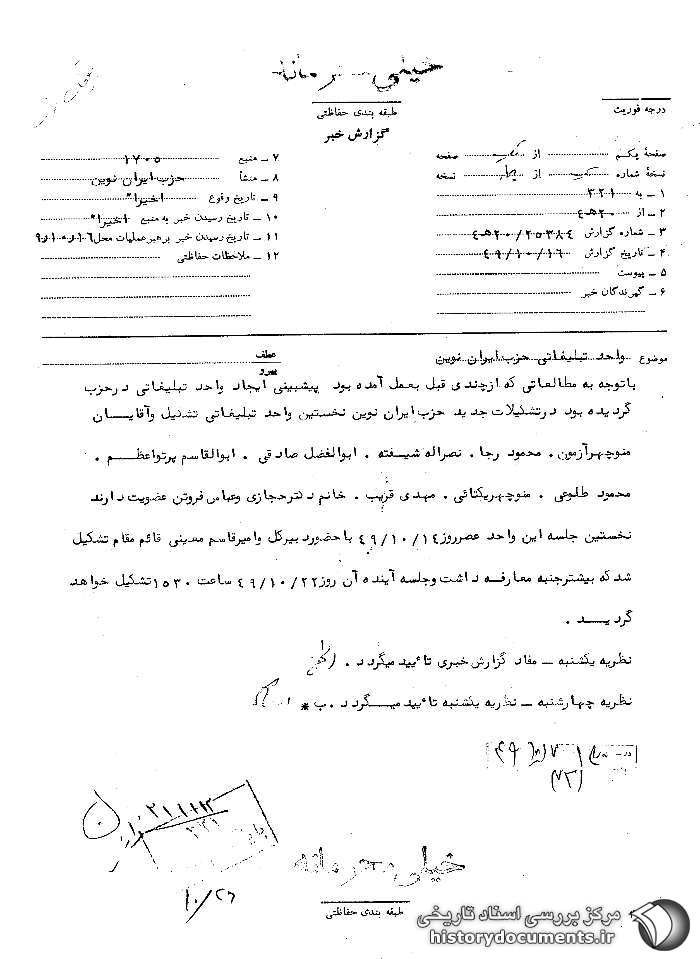 خیلی محرمانه
طبقه بندی حفاظتی
درجه فوریت
گزارش خبر
صفحهٔ یکم از یک صفحه
نسخهٔ شماره یک از نسخه
۱ ـ به ۳۲۱
۲ ـ از ۲۰ هـ ٤
۳ ـ شماره گزارش ۲۵۳۸٤ / ۲۰ هـ ٤
٤ ـ تاریخ گزارش ٤۹/۱۰/۱٦
۵ ـ پیوست
٦ ـ گیرندگان خبر
۷ ـ منبع ۱۷۰۵
۸ ـ منشأ حزب ایران نوین
۹ ـ تاریخ وقوع اخیرا"
۱۰ ـ تاریخ رسیدن خبر به منبع اخیرا"
۱۱ ـ تاریخ رسیدن خبر برهبر عملیات محل
۱۲ ـ ملاحظات حفاظتی
موضوع واحد تبلیغاتی حزب ایران نوین
عطف
پیرو
باتوجه به مطالعاتی که ازچندی قبل بعمل آمده بود پیشبینی ایجاد واحد تبلیغاتی درحزب
گردیده بود درتشکیلات جدید حزب ایران نوین نخستین واحد تبلیغاتی تشکیل وآقایــان
منوچهرآزمون . محمود رجا . نصراله شیفته . ابوالفضل صادقی . ابوالقاسم پرتواعظــم .
محمود طلوعی . منوچهریکتائی . مهدی قریب . خانم دکترحجازی وعباس فروتن عضویت دارند
نخستین جلسه این واحد عصرروز ٤۹/۱۰/۱٤ باحضوردبیرکل وامیرقاسم معینی قائم مقام تشکیل
شدکه بیشترجنبه معارفه داشت وجلسه آینده آن روز ٤۹/۱۰/۲۲ ساعت ۱۵۳۰ تشکیل خواهد
گردیــد .
نظریه یکشنبه ـ مفاد گزارش خبری تائید میگردد .
نظریه چهارشنبه ـ نظریه یکشنبه تائید میــگردد . ب *
۲۱۱۰۱۳
۳۲۱
۱۰/۲۶
خیلی محرمانه
طبقه بندی حفاظتی
مرکز بررسی اسناد تاریخی
historydocuments.ir